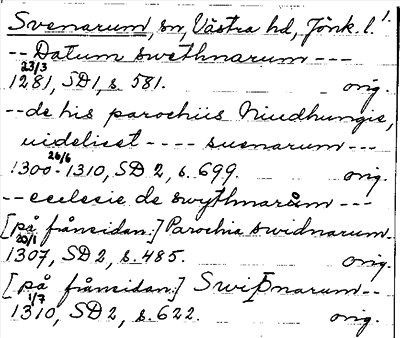 Svenarum, sn, Västra hd, Jönk. l.
-- Datum swethnarum ---
23/3
1281, SD 1, s. 581. orig.
-- de his parochiis Niudhungie,
uidelicet ---- suenarum ---
26/6
1300-1310, SD 2, s. 699. orig.
-- ecclesie de swythnarum ---
[på frånsidan:] Parochia swidnarum
20/1
1307, SD 2, s. 485. orig.
[på frånsidan:] Swiþnarum --
1/7
1310, SD 2, s. 622. orig.